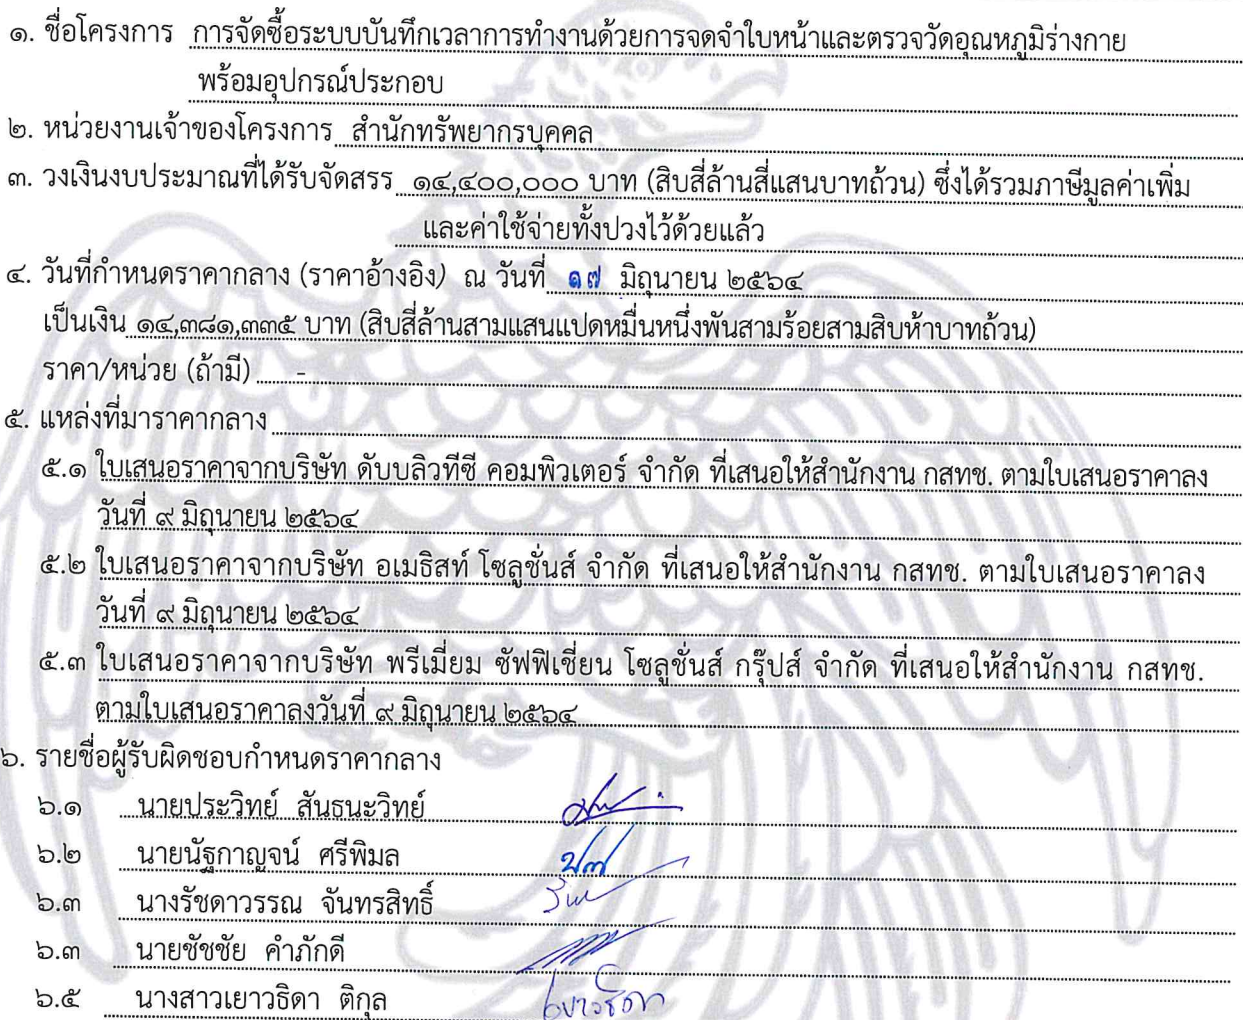 ๑. ชื่อโครงการ การจัดซื้อระบบบันทึกเวลาการทำงานด้วยการจดจำใบหน้าและตรวจวัดอุณหภูมิร่างกาย
พร้อมอุปกรณ์ประกอบ
๒. หน่วยงานเจ้าของโครงการ สำนักทรัพยากรบุคคล
๓. วงเงินงบประมาณที่ได้รับจัดสรร ๑๔,๔๐๐,๐๐๐ บาท (สิบสี่ล้านสี่แสนบาทถ้วน) ซึ่งได้รวมภาษีมูลค่าเพิ่ม
และค่าใช้จ่ายทั้งปวงไว้ด้วยแล้ว
๔. วันที่กำหนดราคากลาง (ราคาอ้างอิง) ณ วันที่ ๑๗ มิถุนายน ๒๕๖๔
เป็นเงิน ๑๔,๓๘๑,๓๓๕ บาท (สิบสี่ล้านสามแสนแปดหมื่นหนึ่งพันสามร้อยสามสิบห้าบาทถ้วน)
ราคา/หน่วย (ถ้ามี) -
๕. แหล่งที่มาราคากลาง
๕.๑ ใบเสนอราคาจากบริษัท ดับบลิวทีซี คอมพิวเตอร์ จำกัด ที่เสนอให้สำนักงาน กสทช. ตามใบเสนอราคาลง
วันที่ ๙ มิถุนายน ๒๕๖๔
๕.๒ ใบเสนอราคาจากบริษัท อเมธิสท์ โซลูชั่นส์ จำกัด ที่เสนอให้สำนักงาน กสทช. ตามใบเสนอราคาลง
วันที่ ๙ มิถุนายน ๒๕๖๔
๕.๓ ใบเสนอราคาจากบริษัท พรีเมี่ยม ซัฟฟิเชี่ยน โซลูชั่นส์ กรุ๊ปส์ จำกัด ที่เสนอให้สำนักงาน กสทช.
ตามใบเสนอราคาลงวันที่ ๙ มิถุนายน ๒๕๖๔
๖. รายชื่อผู้รับผิดชอบกำหนดราคากลาง
๖.๑ นายประวิทย์ สันธนะวิทย์
๖.๒ นายนัฐกาญจน์ ศรีพิมล
๖.๓ นางรัชดาวรรณ จันทรสิทธิ์
๖.๓ นายชัชชัย คำภักดี
๖.๕ นางสาวเยาวธิดา ติกุล เยาวธิดา